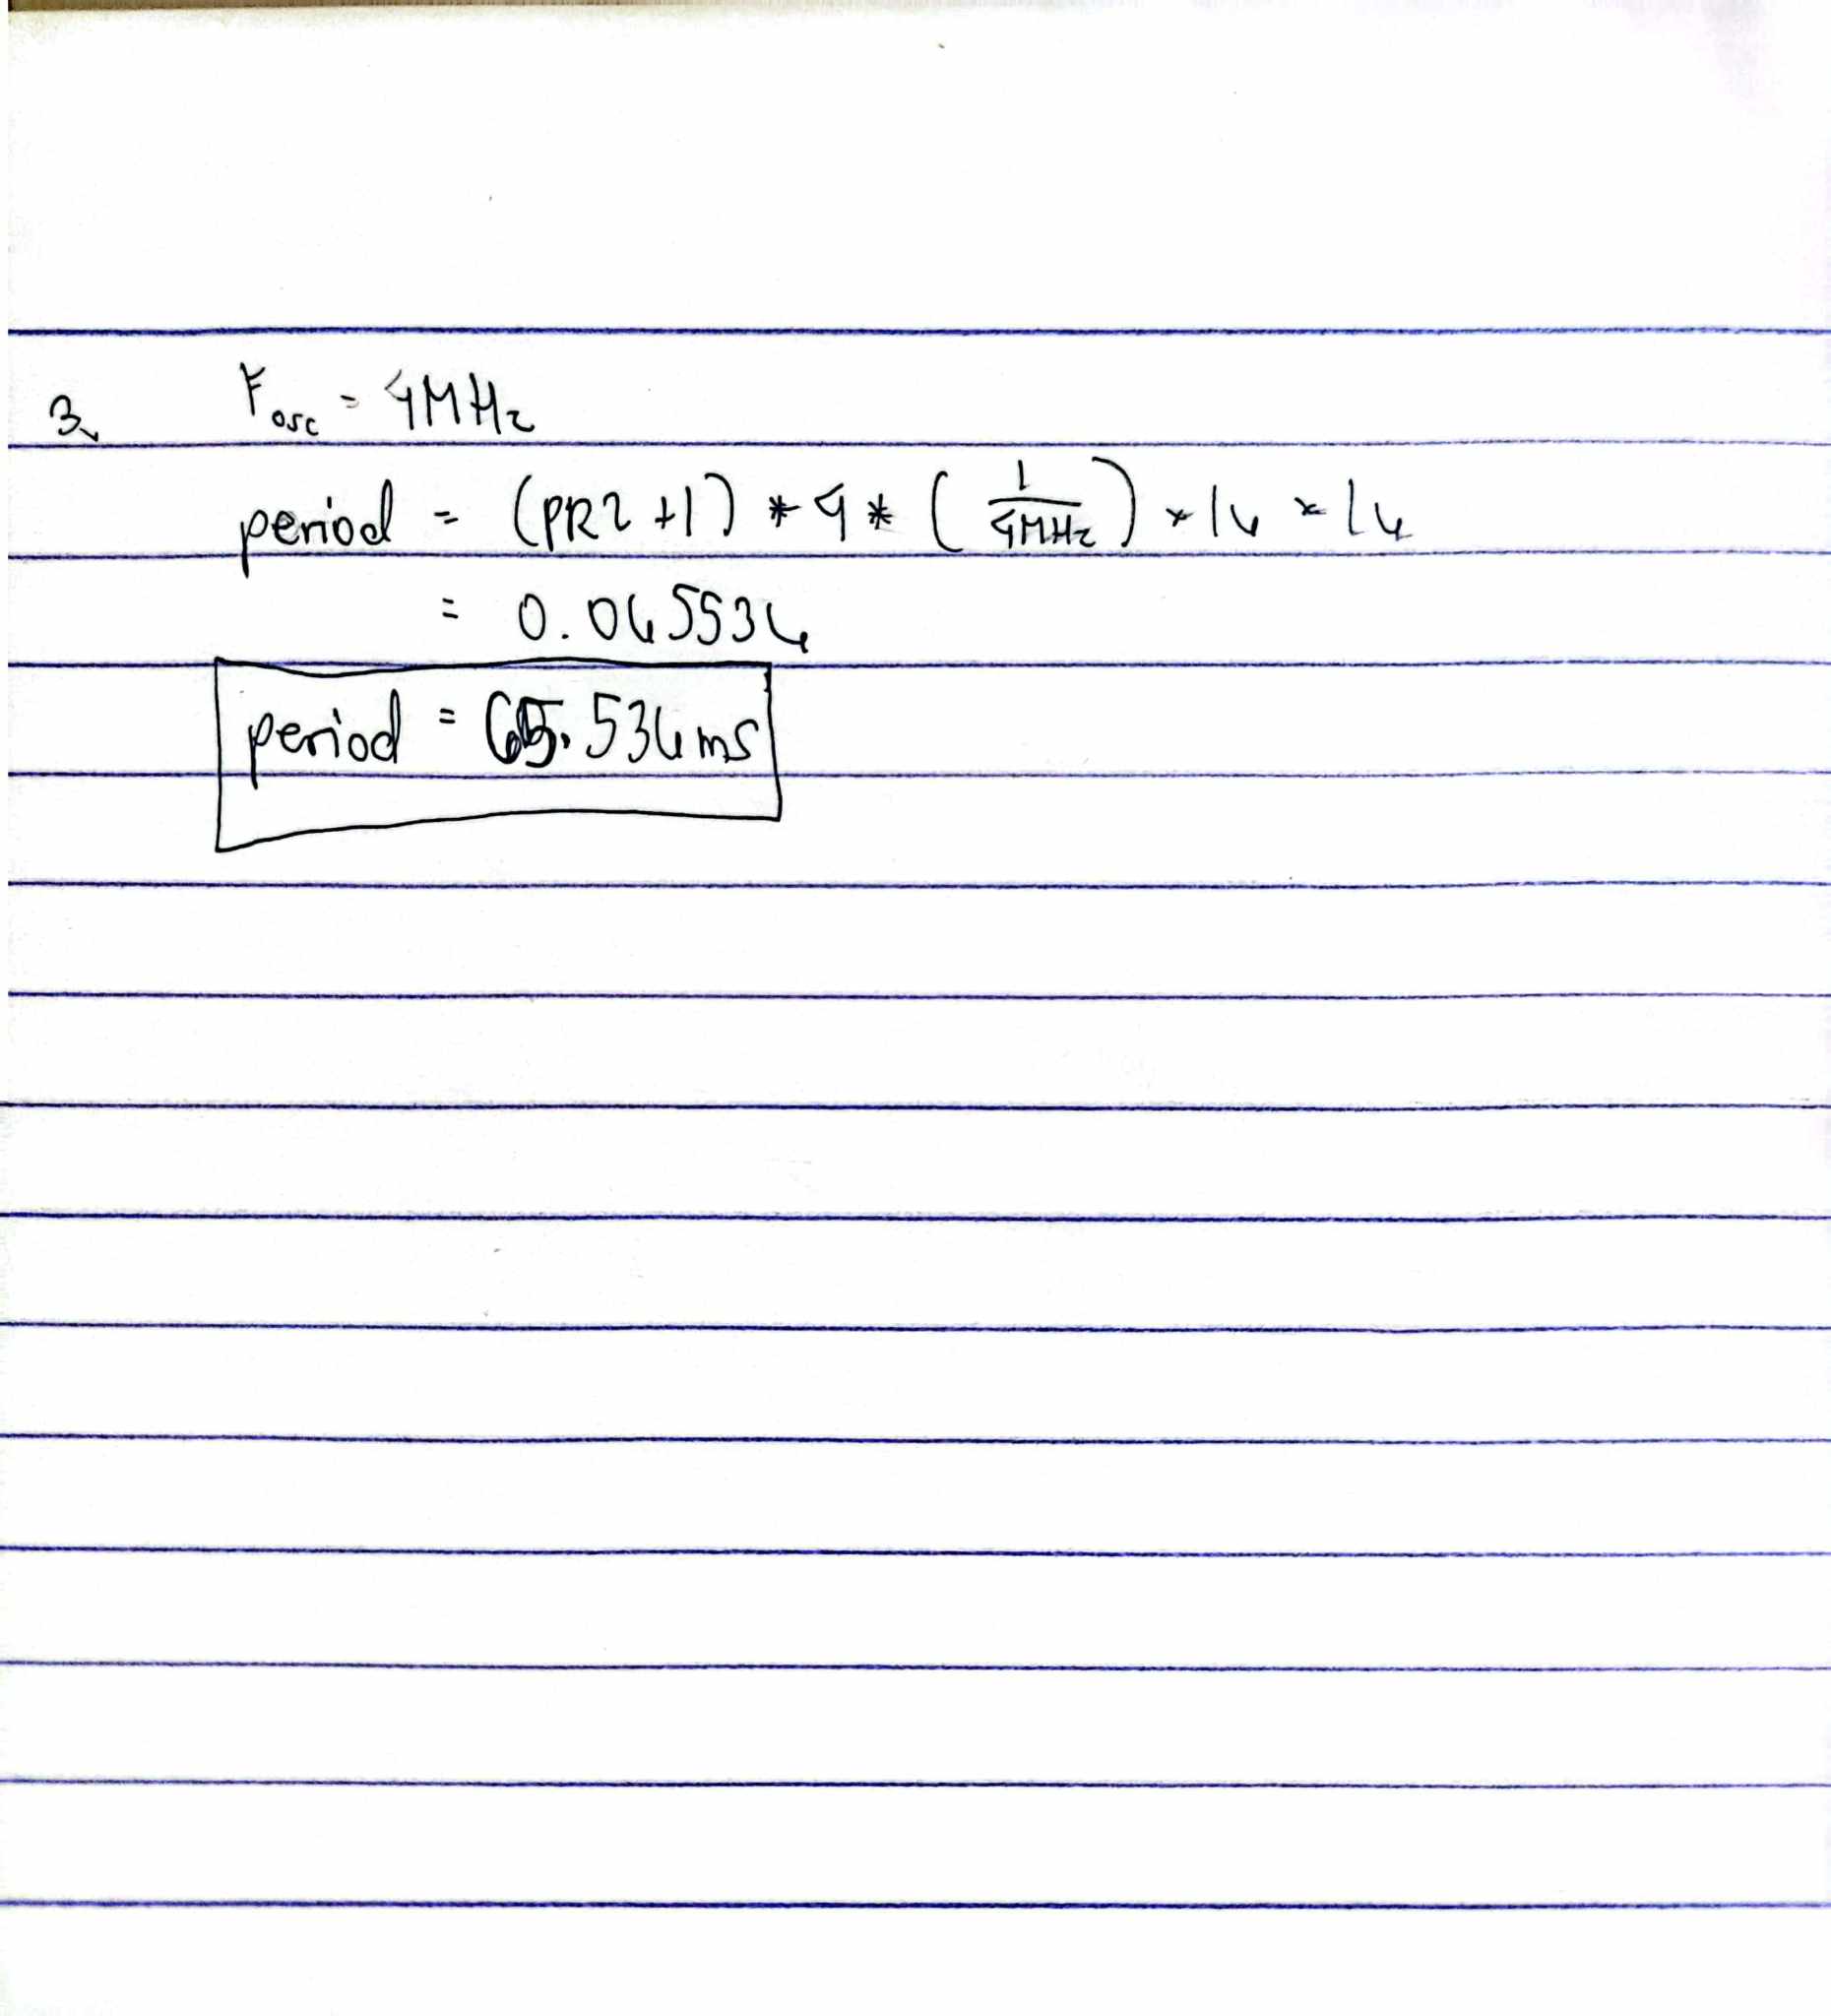 3. Fosc = 4MHz
period = (PR2 + 1) * 4 * (1/4MHz) * 16 * 16
= 0.065536
period = 65.536ms